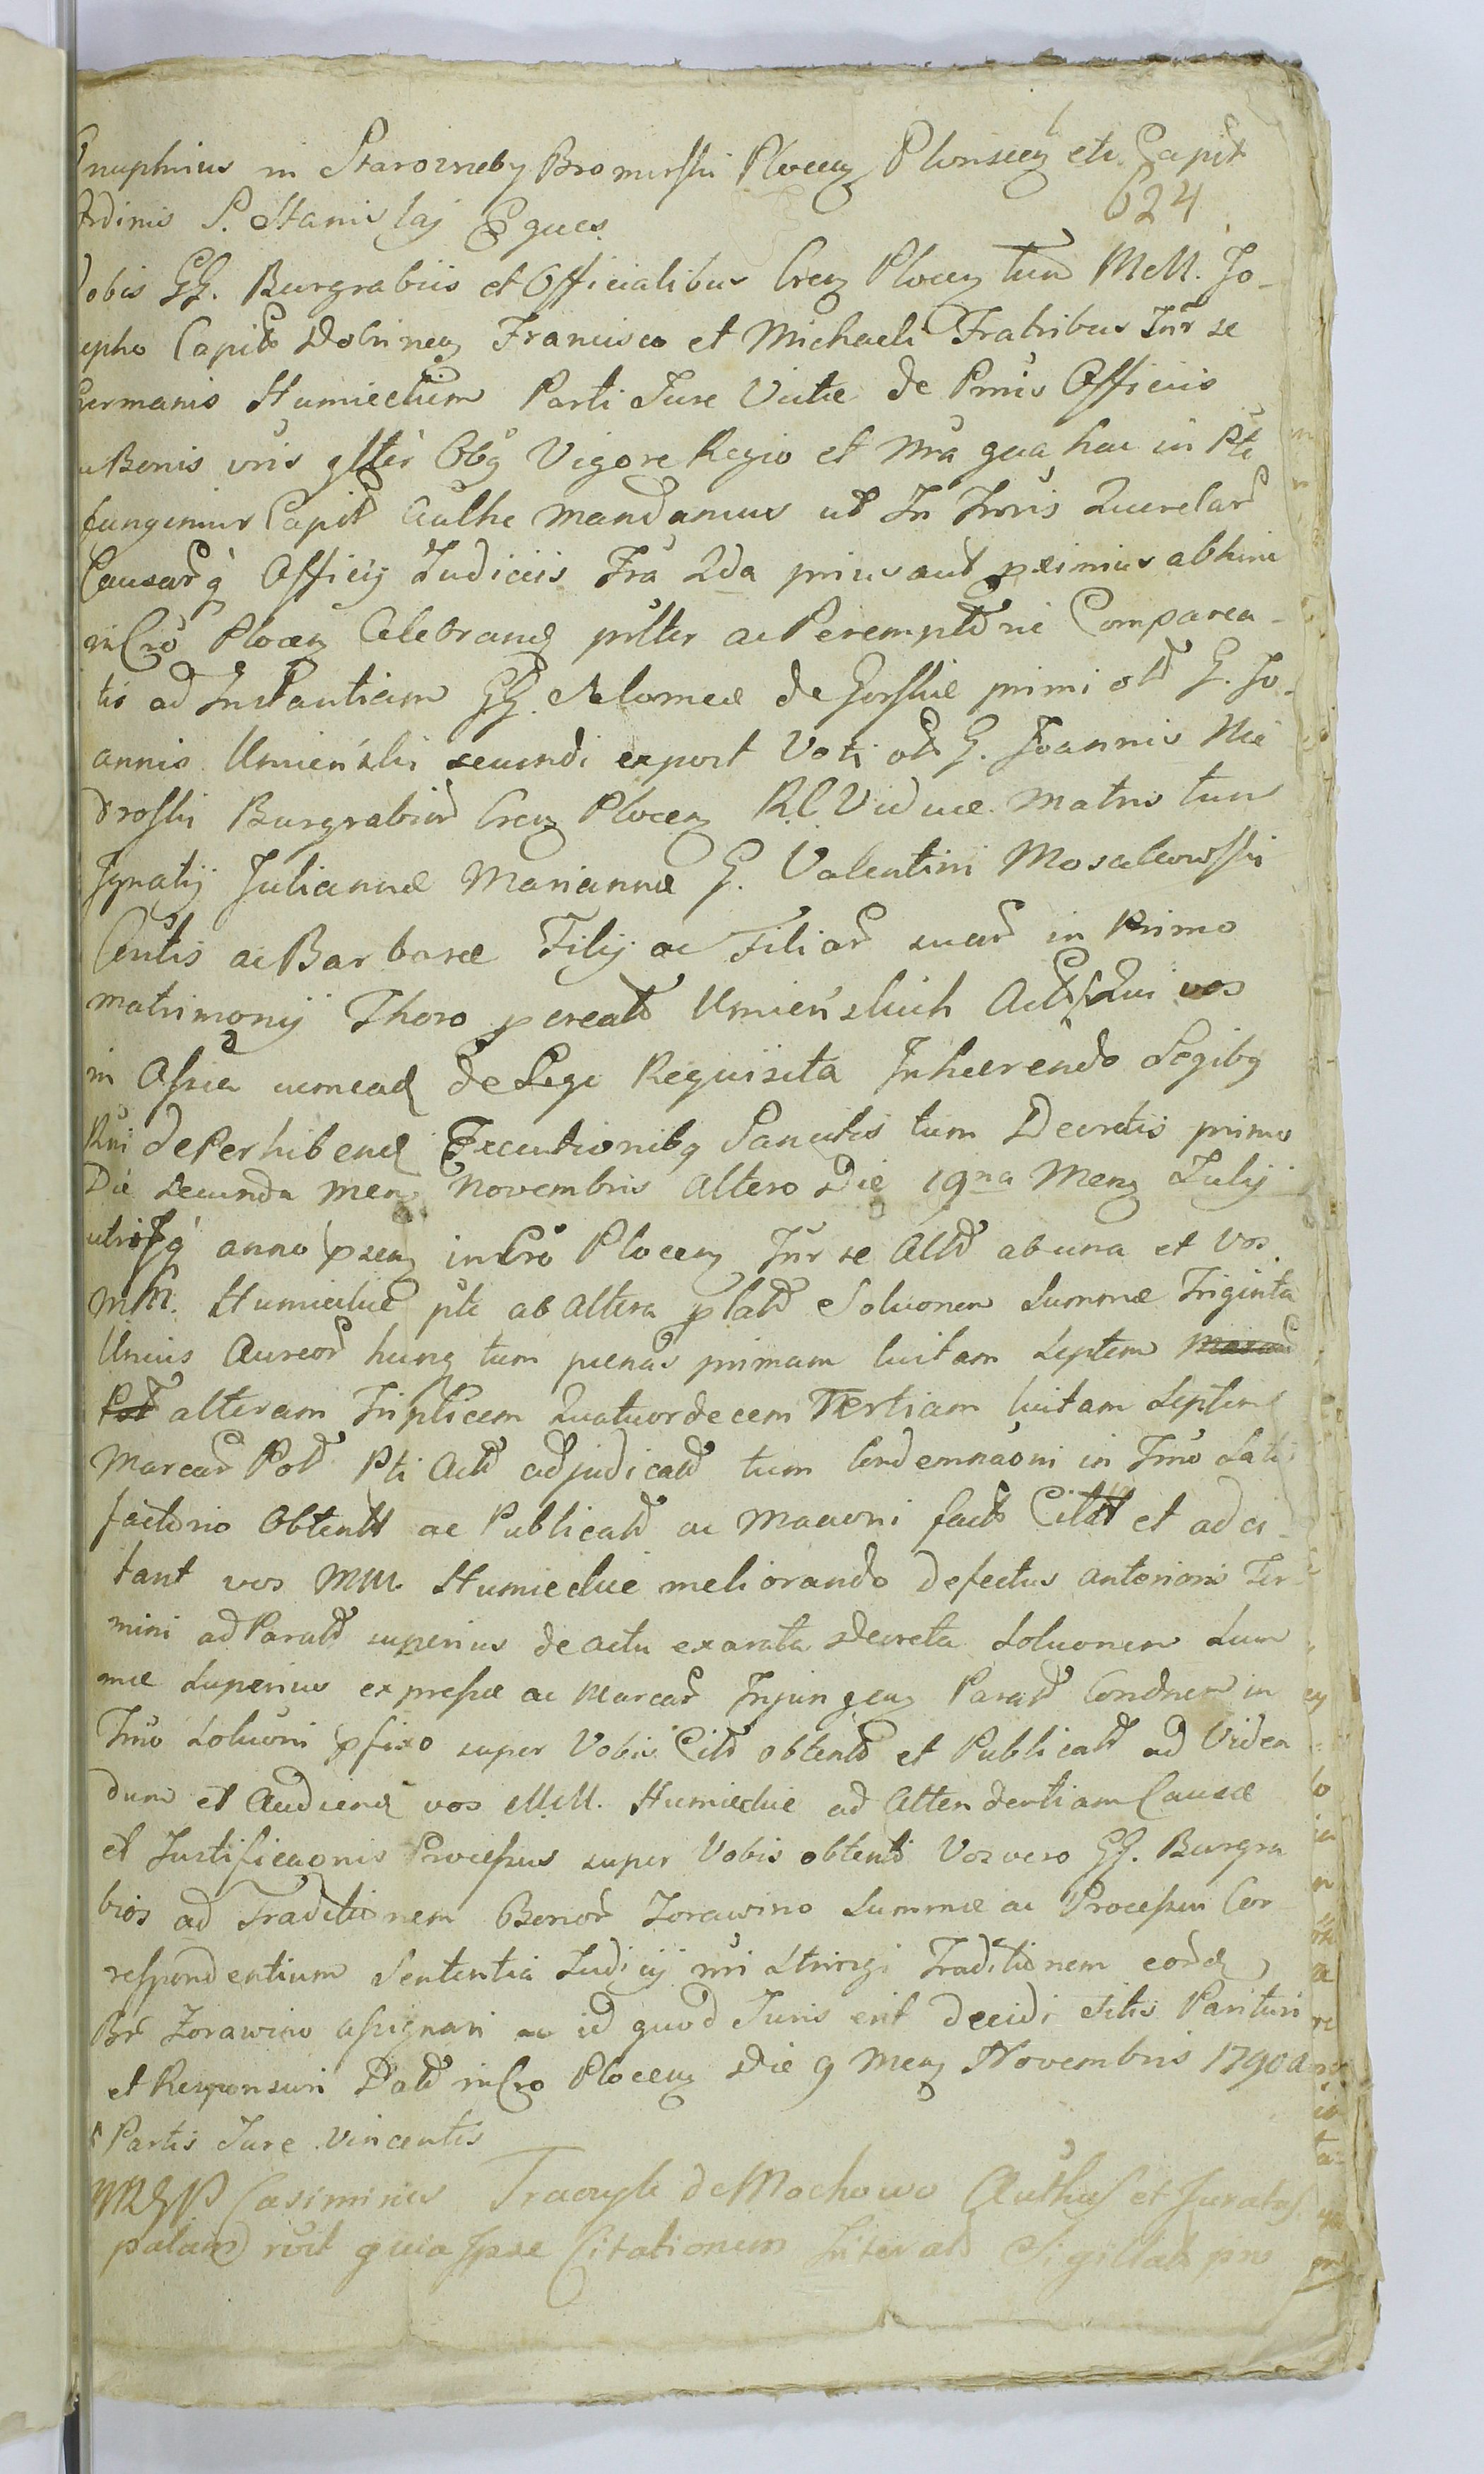 nuphrius in Starozreby Bromirski Plocen Plonscen etc. Capit
624
rdinis S. Stanislaj Eques
obis GG. Burgrabiis et Officialibus Cren Plocen tum MM. Jo-
epho Capit Dobrinen Francisco et Michaeli Fratribus Intr se
Germanis Humieckim Parti Jure Victæ de Pmis Officiis
ac Bonis vris glter Obq Vigore Regio et Nra qua hac in Pte
fungimur Capit Authe Mandamus ut In Trris Querelar
Causar q Officij Judiciis Fra 2da prius aut proximius abhinc
in Cro Plocen Celebrand prlter ac Peremptorie Comparea-
tis ad Instantiam GG. Salomeæ de Gorskie primi olt G. Jo-
annis Umieński secundi expost Voti olt G. Joannis Nie
droski Burgrabii Cren Plocen R.C. Viduæ Matris tum
Ignatij Juliannæ Mariannæ G. Valentini Mosakowski
Contis ac Barbaræ Filij ac Filiar suar in Primo
matrimonij Thoro pcreat Umieńskich Act Qui vos
in Assia cumead de Lege Requisita Inhærendo Legibq
Rni de Perhibend Executionibq Sancitis tum Decretis primo
Die secunda Men Novembris Altero Die 19na Men Julij
utroq anno psen in Cro Plocen Intr se Act ab una et Vos
MM. Humieckie pte ab altera plat Soluonem Summæ Triginta
Unius Aureor hung tum pænas primam luitam Septem
alteram Triplicem Quatuordecem Tertiam luitam Septem
Marcar Pol Pti Act adjudicat tum Condemnaoni in Tmo Satis
factorio Obtent ac Publicat ac Macioni fact Citat et adci-
tant vos MM. Humieckie meliorando defectus anterioris Ter-
mini ad Parat superius de actu exarata Decreta Soluonem Sum
mæ Superius expressæ ac Marcar Injungen Parat Condnem in
Tmo Soluoni pfixo super Vobis Cit obtent et Publicat ad Viden
dum et Audiend vos MM. Humieckie ad Attendentiam Causæ
et Justificaonis Processus super Vobis obtenti Vos vero GG. Burgra
bios ad Traditionem Bonor Zorawino Summæ ac Processui Cor
respondentium Sententia Judicij nri Stringi Traditionem eord
Br Zorawino assignari ac id quod Juris erit decidi Sitis Parituri
et Responsuri Dat in Cro Plocen Die 9 Men Novembris 1790 a
Partis Jure Vincentis
Casimirus de Mochowo Authus et Juratus
palam rvit quia Ipse Citationem Literat Sigillat pro